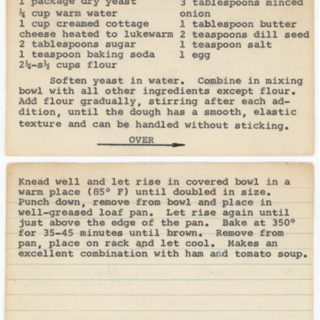 1 package dry yeast 3 tablespoons minced
¼ cup warm water onion
1 cup creamed cottage 1 tablespoon butter
cheese heated to lukewarm 2 teaspoons dill seed
2 tablespoons sugar 1 teaspoon salt
1 teaspoon baking soda 1 egg
cups flour
Soften yeast in water. Combine in mixing
bowl with all other ingredients except flour.
Add flour gradually, stirring after each ad-
dition, until the dough has a smooth, elastic
texture and can be handled without sticking.
OVER
Knead well and let rise in covered bowl in a
warm place (85° F) until doubled in size.
Punch down, remove from bowl and place in
well-greased loaf pan. Let rise again until
just above the edge of the pan. Bake at 350°
for 35-45 minutes until brown. Remove from
pan, place on rack and let cool. Makes an
excellent combination with ham and tomato soup.